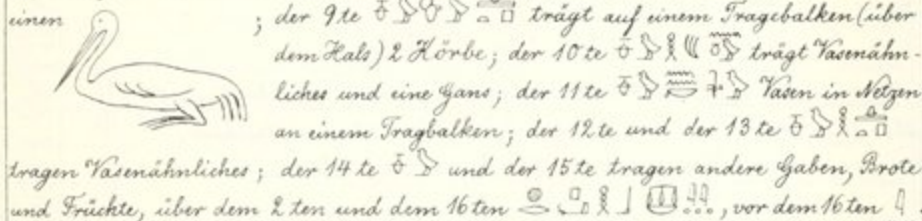 einen ; der 9te trägt auf einem Tragebalken (über
dem Hals) 2 Körbe; der 10te trägt Vasenähn-
liches und eine Gans; der 11te Vasen in Netzen
an einem Tragbalken; der 12te und der 13te
tragen Vasenähnliches; der 14te und der 15te tragen andere Gaben, Brote
und Früchte, über dem 2ten und dem 16ten , vor dem 16ten